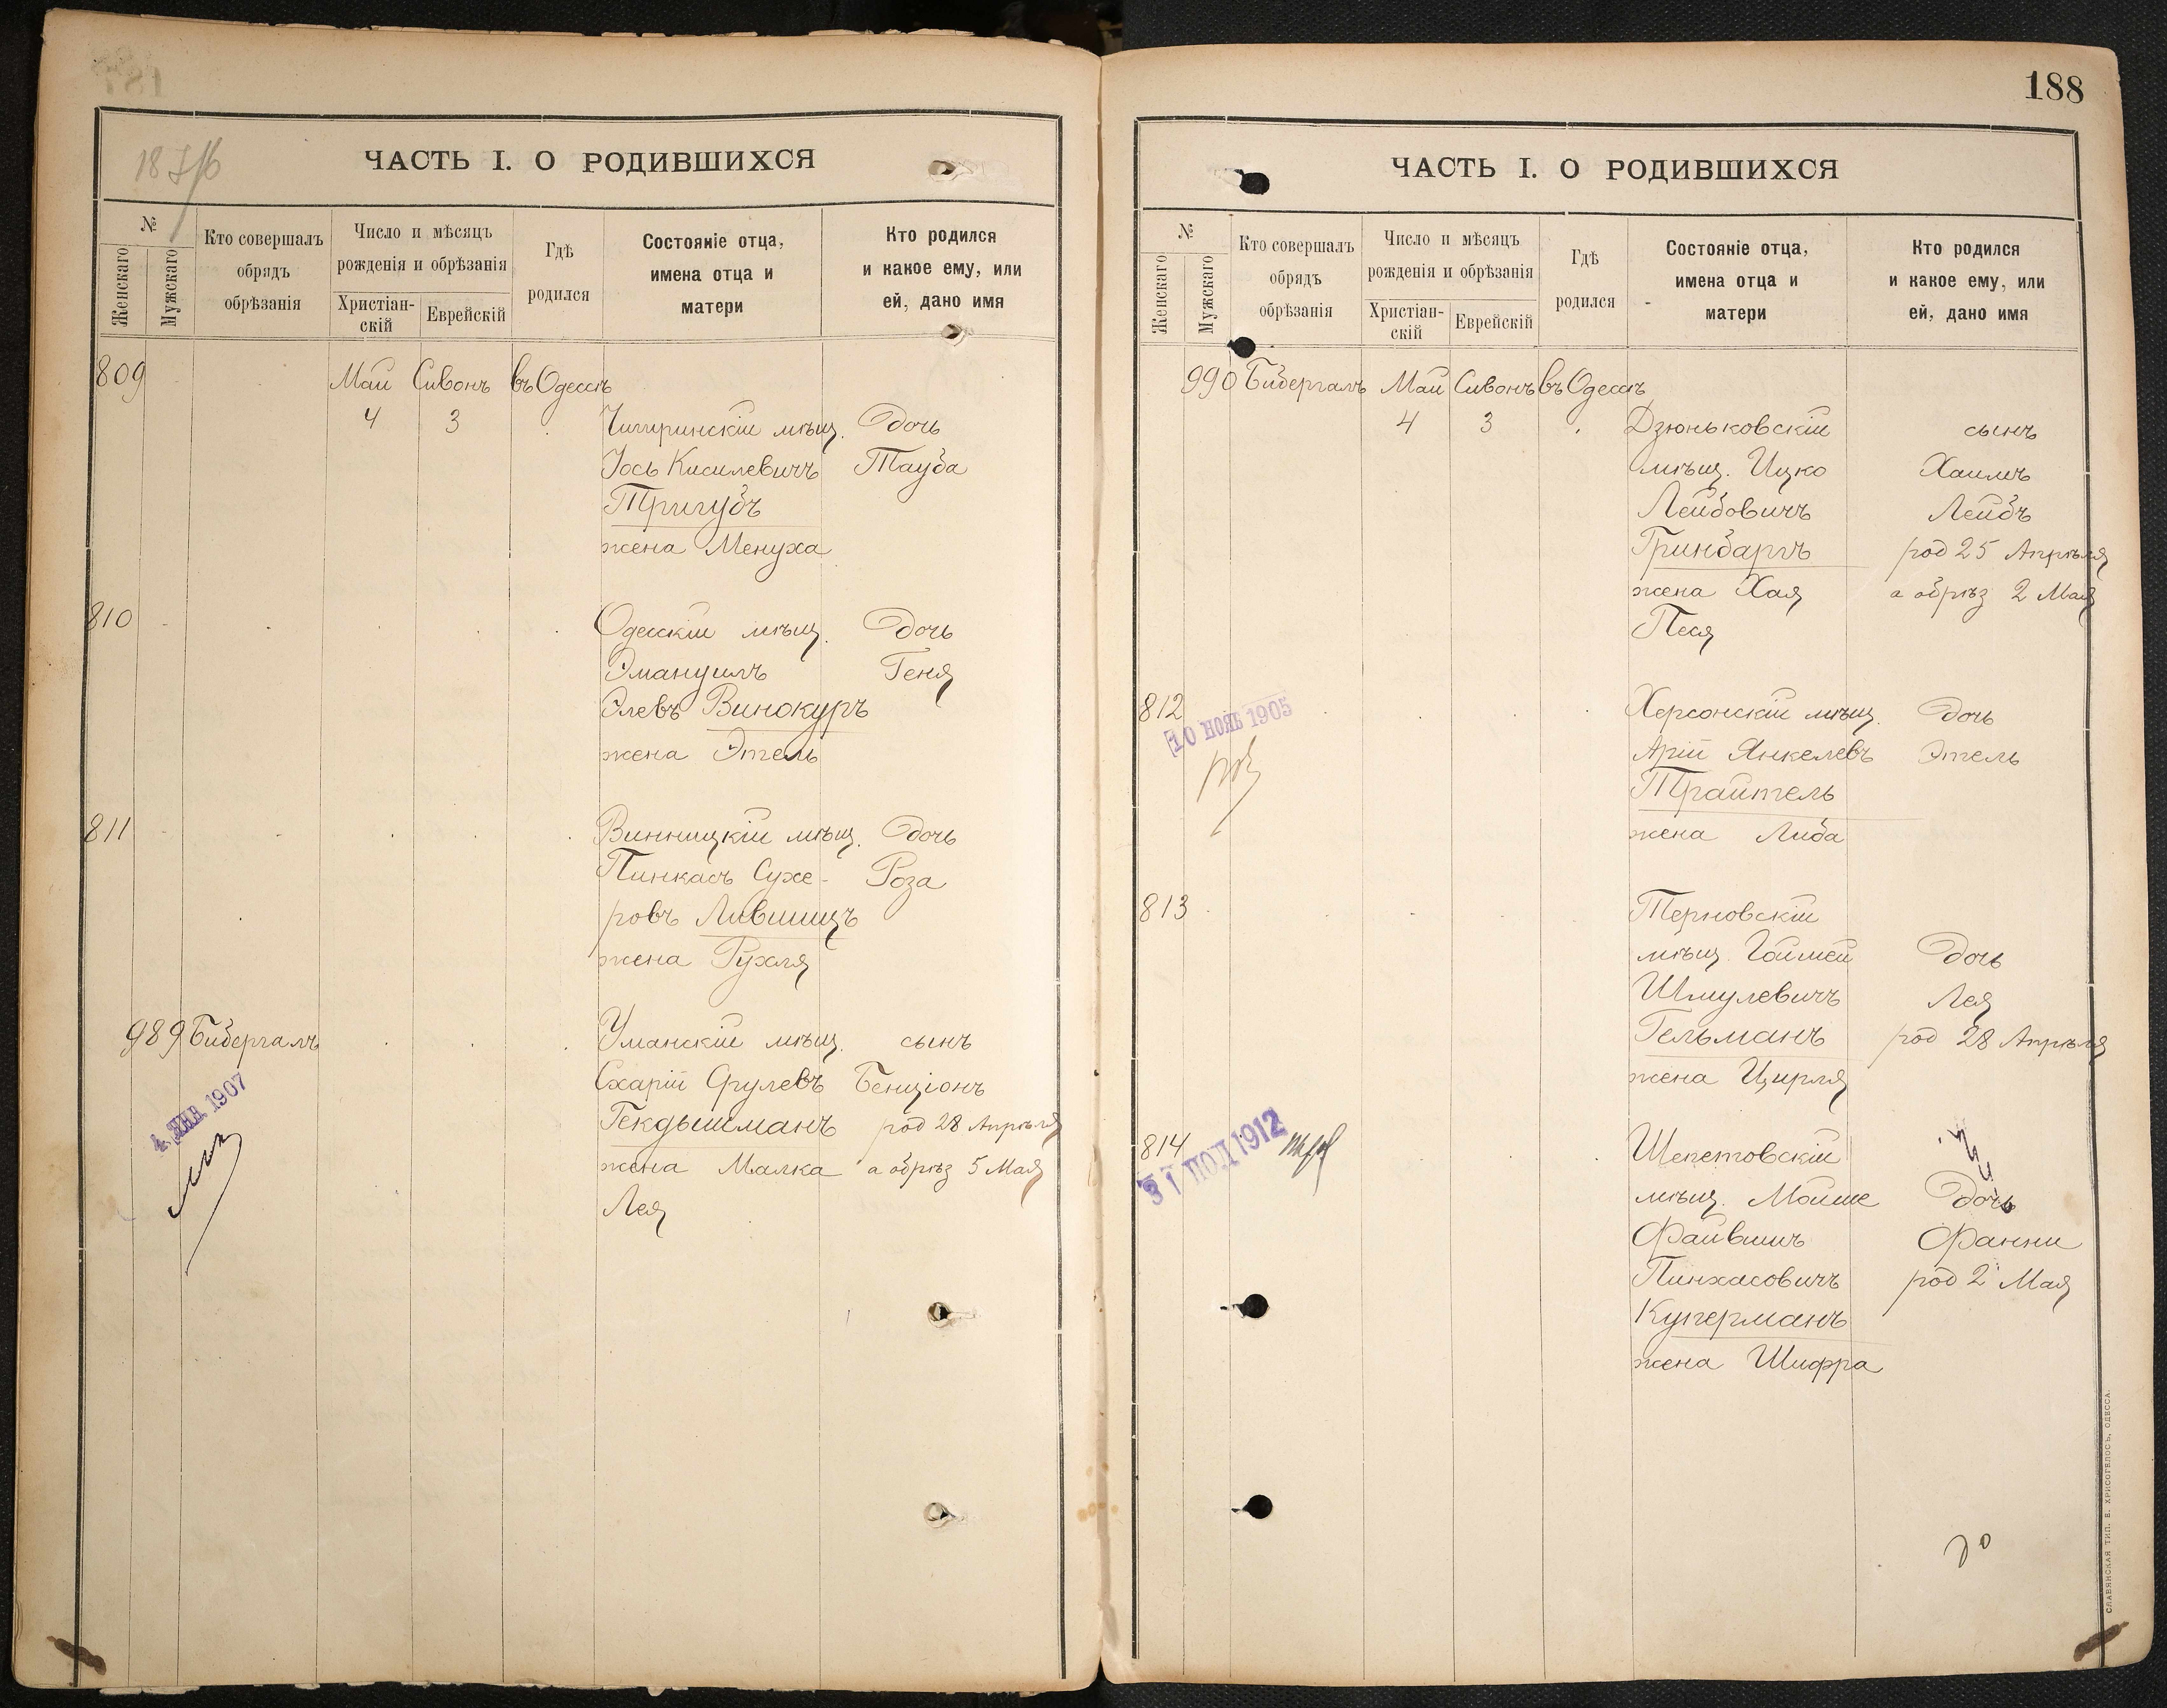 ЧАСТЬ I. О РОДИВШИХСЯ
№
Женскаго
Мужскаго
Кто совершалъ
обрядъ
обрѣзанія
Число и мѣсяцъ
рожденія и обрѣзанія
Христіан-
скій
Еврейскій
Гдѣ
родился
Состояніе отца,
имена отца и
матери
Кто родился
и какое ему, или
ей, дано имя
809 Май Сивонъ въ Одессѣ
4 3 Чигиринскій мѣщ. Дочь
Іось Кисилевичъ Тауба
Тригубъ
жена Менуха
810 Одесскій мѣщ. Дочь
Эмануилъ Геня
Элевъ Винокуръ
жена Этель
811 Винницкій мѣщ. Дочь
Пинкасъ Сухе- Роза
ровъ Лившицъ
жена Рухля
989 Бибергалъ Уманскій мѣщ. сынъ
Схарій Срулевъ Бенціонъ
Гекдышманъ род 28 Апрѣля
жена Малка а обрѣз 5 Мая
Лея
4 ЯНВ. 1907
188
ЧАСТЬ I. О РОДИВШИХСЯ
№
Женскаго
Мужскаго
Кто совершалъ
обрядъ
обрѣзанія
Число и мѣсяцъ
рожденія и обрѣзанія
Христіан-
скій
Еврейскій
Гдѣ
родился
Состояніе отца,
имена отца и
матери
Кто родился
и какое ему, или
ей, дано имя
990 Бибергалъ Май Сивонъ въ Одессѣ
4 3 Дзюньковскій сынъ
мѣщ. Ицко Хаимъ
Лейбовичъ Лейбъ
Гринбаргъ род 25 Апрѣля
жена Хая а обрѣз 2 Мая
Песя
812 Херсонскій мѣщ. Дочь
10 НОЯБ 1905
Арій Янкелевъ Этель
Трайтель
жена Либа
813 Терновскій
мѣщ. Дочь
Шмулевичъ Лея
Гельманъ род 28 Апрѣля
жена Цирля
814 Шепетовскій
31 1912
мѣщ. Мойше Дочь
Файвишъ Фанни
Пинхасовичъ род 2 Мая
Куперманъ
жена Шифра
СЛАВЯНСКАЯ ТИП. Е. ХРИСОГЕЛОСЪ, ОДЕССА.